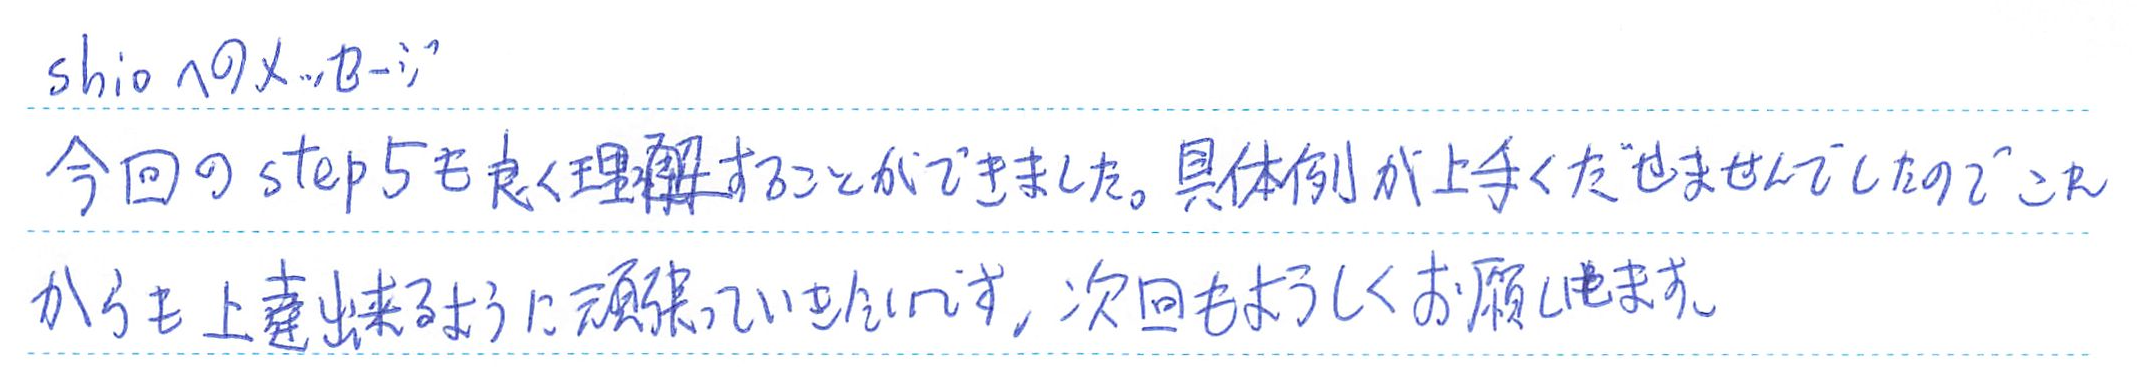 shioへのメッセージ
今回のstep5も良く理解することができました。具体例が上手くだせませんでしたのでこれ
からも上達出来るように頑張っていきたいです。次回もよろしくお願いします。